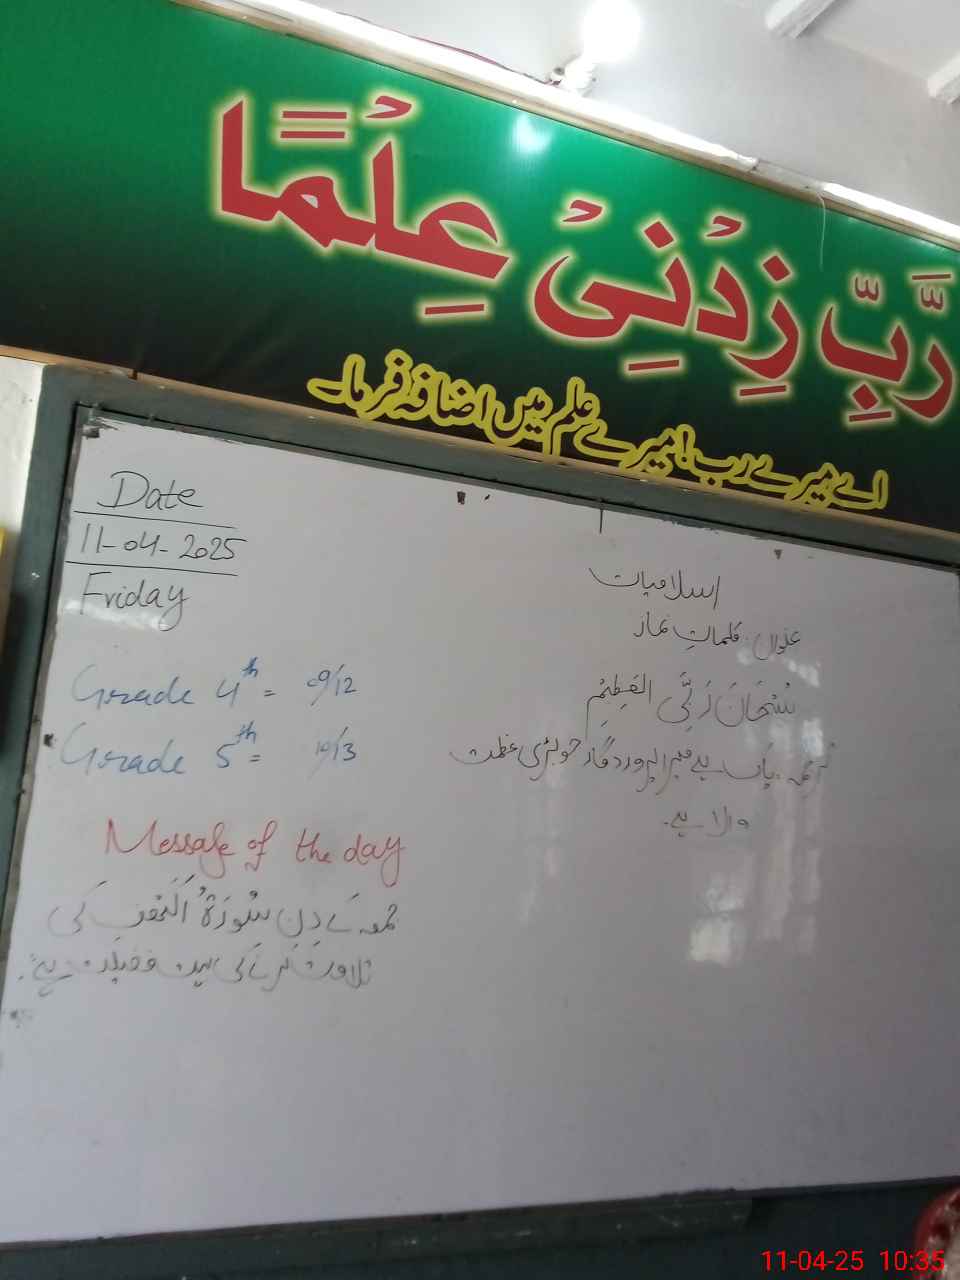 رَّبِّ زِدْنِیْ عِلْمًا
اے میرے رب! میرے علم میں اضافہ فرما۔
Date
11-04-2025
Friday
Grade 4th = 09/12
Grade 5th = 10/13
Message of the day
جمعہ کے دِن سُورَۃُ اَلْکَهْف کی
تلاوت کرنے کی بہت فضیلت ہے۔
اسلامیات
عنوان: کلماتِ نماز
سُبْحَانَ رَبِّیَ العَظِیْمِ
ترجمہ: پاک ہے میرا پروردگار جو بڑی عظمت
والا ہے۔
11-04-25 10:35